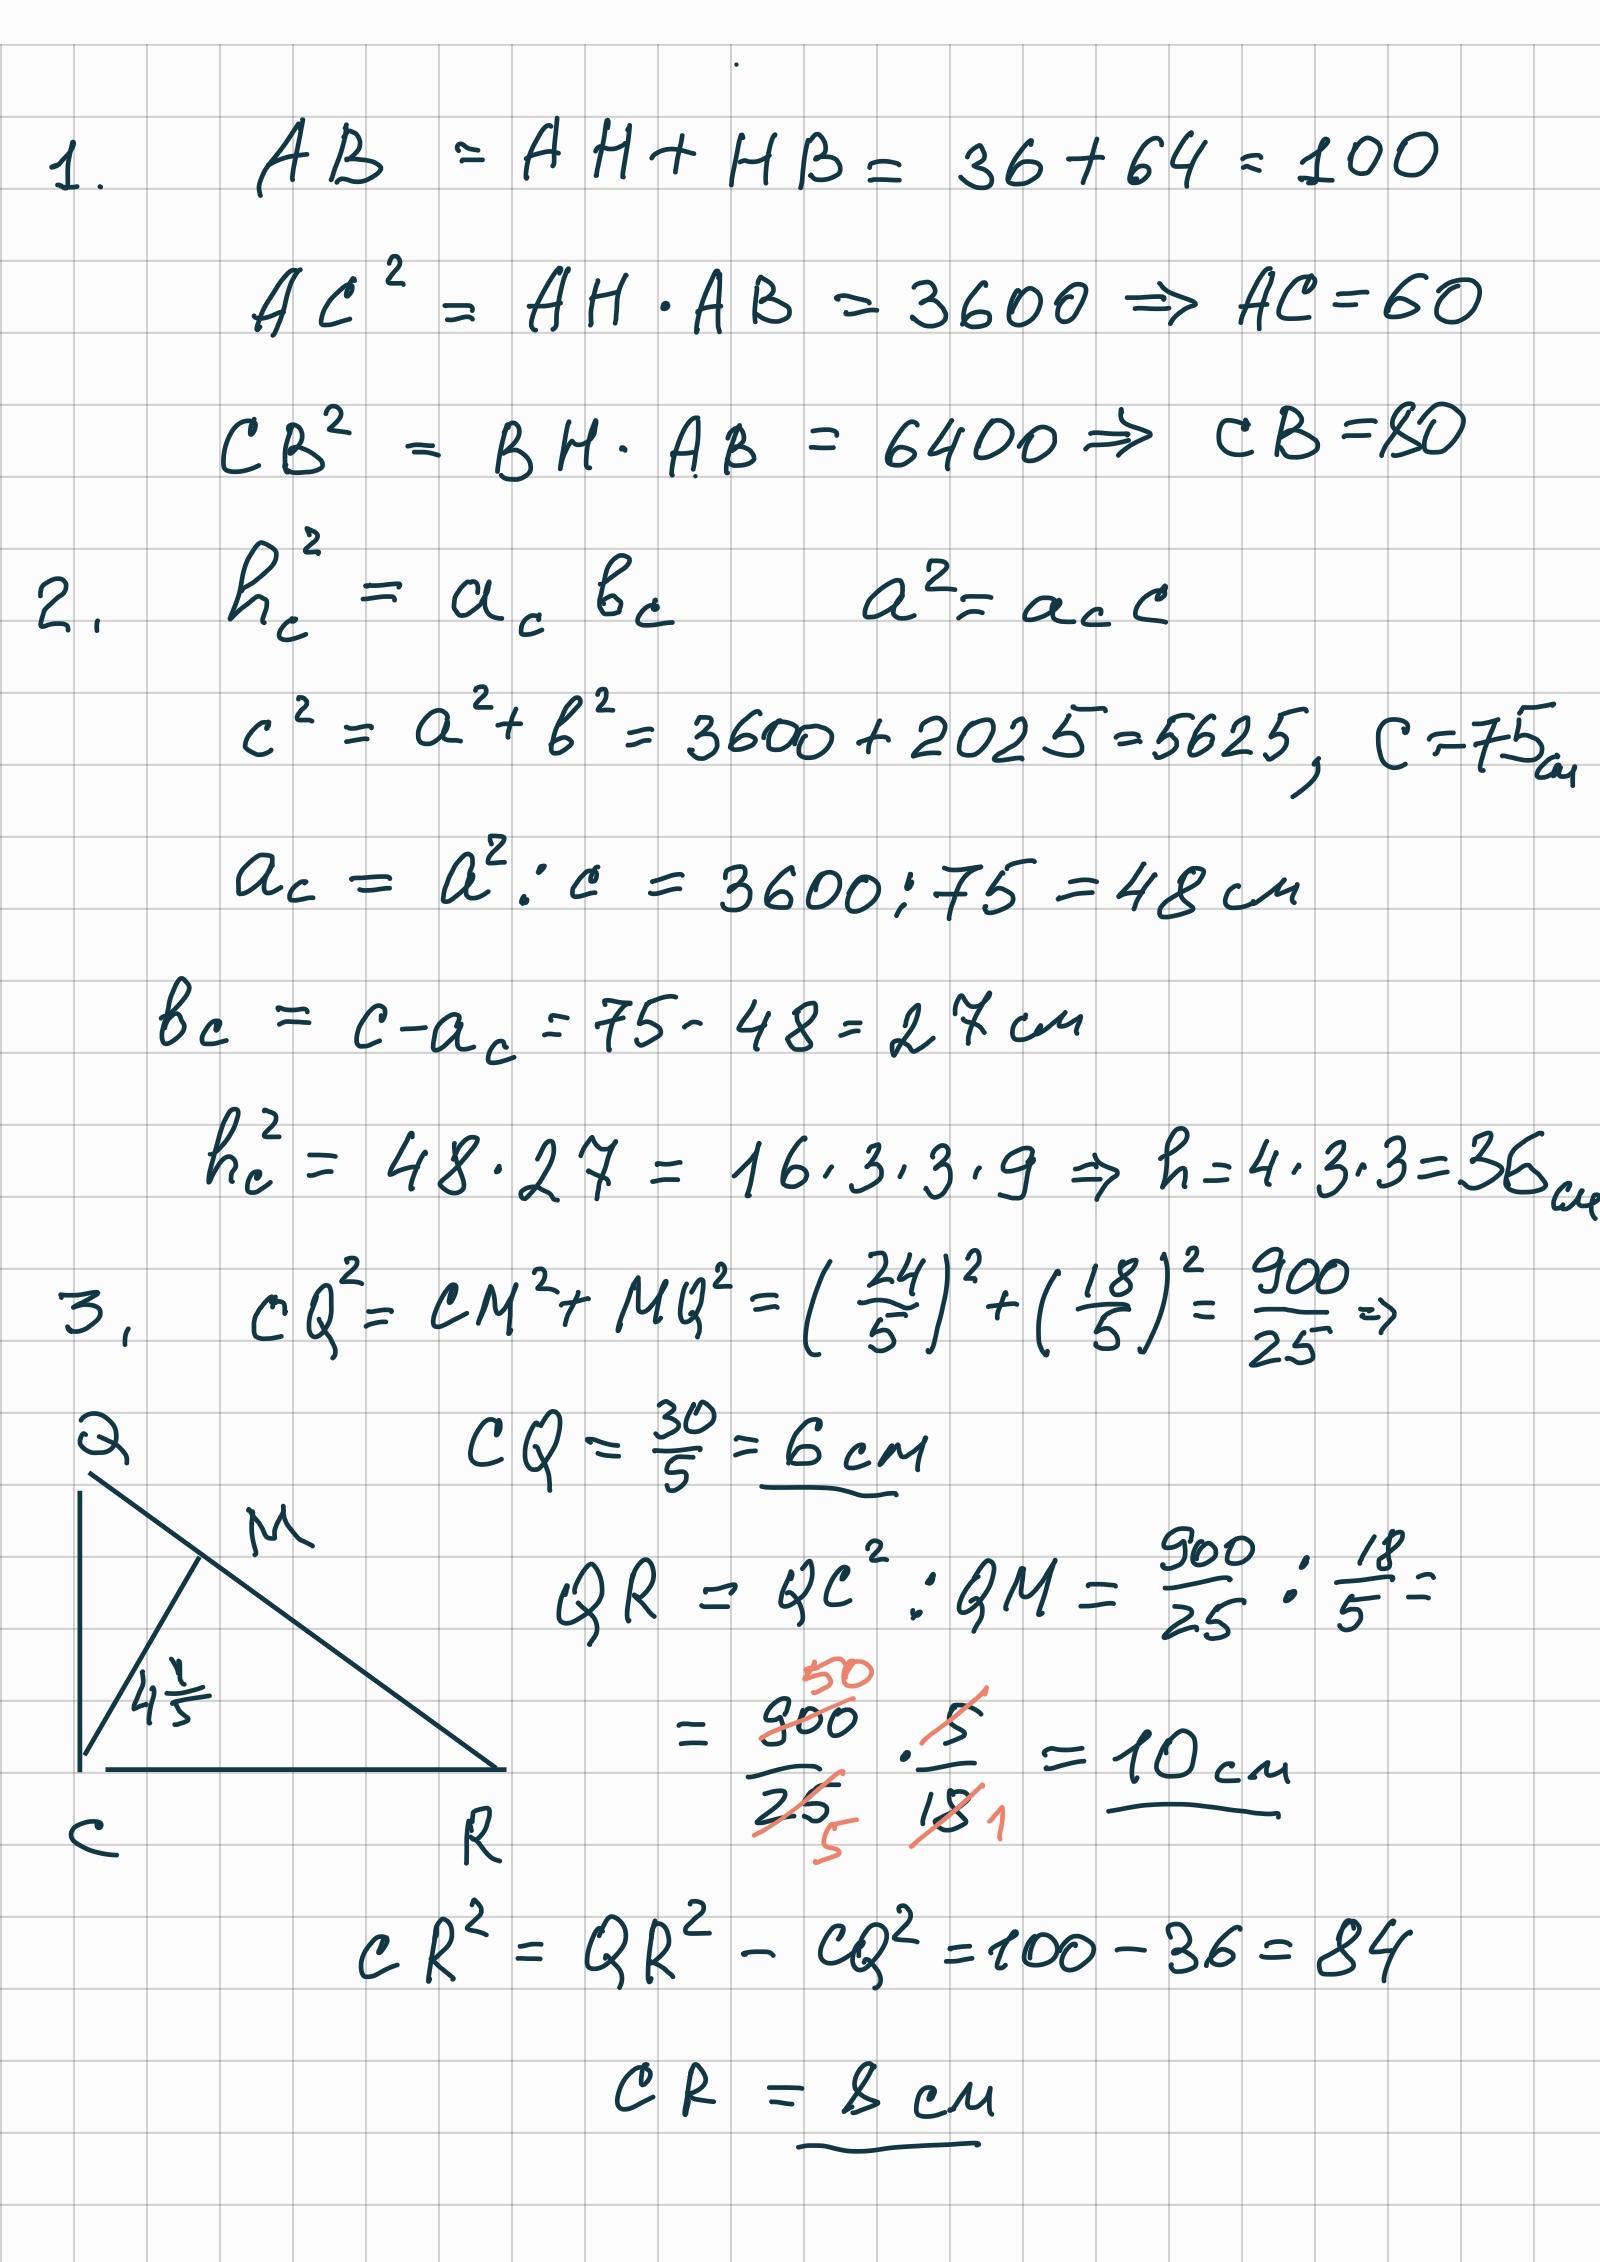 1. AB = AH + HB = 36 + 64 = 100
AC² = AH · AB = 3600 ⇒ AC = 60
CB² = BH · AB = 6400 ⇒ CB = 80
2. h_c² = a_c b_c a² = a_c c
c² = a² + b² = 3600 + 2025 = 5625, c = 75 см
a_c = a² : c = 3600 : 75 = 48 см
b_c = c - a_c = 75 - 48 = 27 см
h_c² = 48 · 27 = 16 · 3 · 3 · 9 ⇒ h = 4 · 3 · 3 = 36 см
3. CQ² = CM² + MQ² = (24/5)² + (18/5)² = 900/25 ⇒
CQ = 30/5 = 6 см
Q
M
QR = QC² : QM = 900/25 : 18/5 =
4 4/5
50
= 900/25 · 5/18 = 10 см
5 1
C R
CR² = QR² - CQ² = 100 - 36 = 84
CR = 8 см